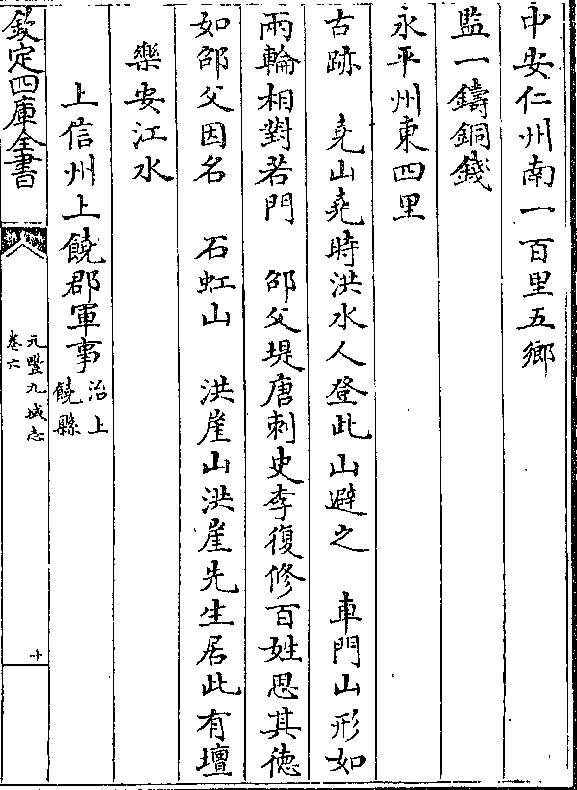 中安仁州南一百里五鄉
監一鑄銅錢
永平州東四里
古跡　堯山堯時洪水人登此山避之　車門山形如
兩輪相對若門　邵父堤唐刺史李復修百姓思其徳
如邵父因名　石虹山　洪崖山洪崖先生居此有壇
樂安江水
上信州上饒郡軍事治上饒縣
欽定四庫全書
元豐九域志
卷六
十